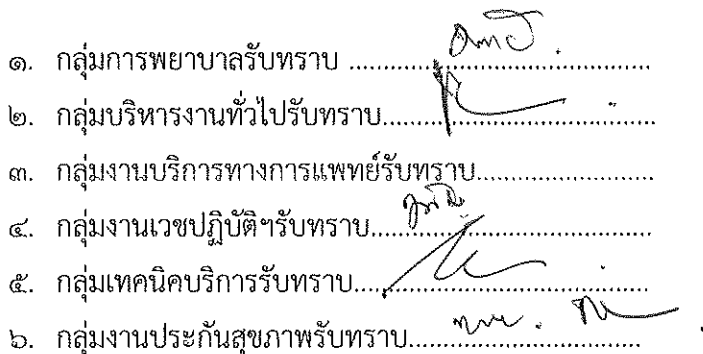 ๑. กลุ่มการพยาบาลรับทราบ ............................................
๒. กลุ่มบริหารงานทั่วไปรับทราบ.......................................
๓. กลุ่มงานบริการทางการแพทย์รับทราบ..........................
๔. กลุ่มงานเวชปฏิบัติฯรับทราบ........................................
๕. กลุ่มเทคนิคบริการรับทราบ..........................................
๖. กลุ่มงานประกันสุขภาพรับทราบ..................................